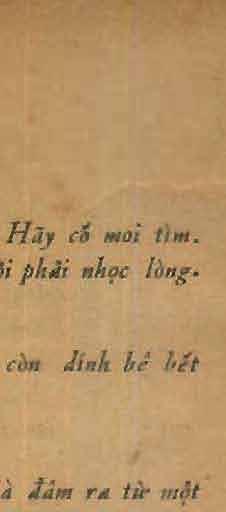 Hãy cố moi tìm.
ôi phải nhọc lòng.
còn dính bê bết
à đâm ra từ một